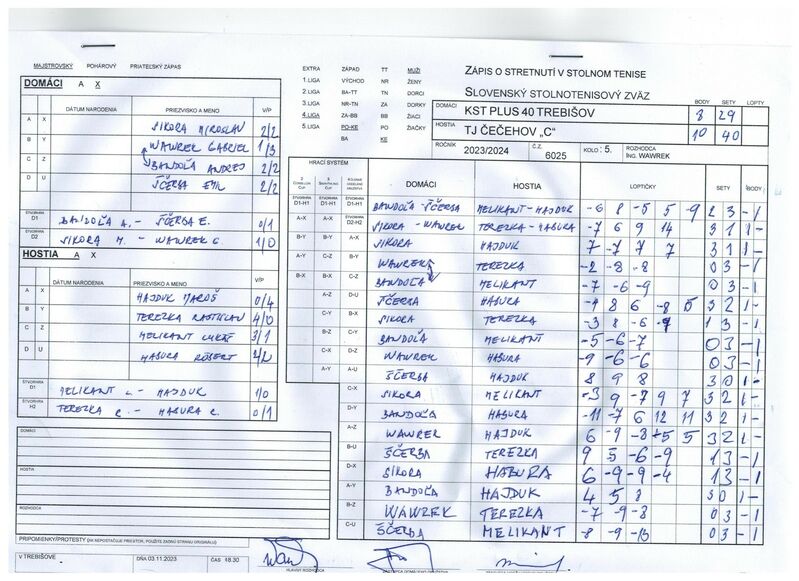 MAJSTROVSKÝ POHÁROVÝ PRIATEĽSKÝ ZÁPAS
DOMÁCI A X
DÁTUM NARODENIA PRIEZVISKO A MENO V/P
A X SIKORA MIROSLAV 2/2
B Y WAWREK GABRIEL 1/3
C Z BANDOĽA ANDREJ 2/2
D U ŠČERBA EMIL 2/2
ŠTVORHRA D1 BANDOĽA A. - ŠČERBA E. 0/1
ŠTVORHRA D2 SIKORA M. - WAWREK G. 1/0
HOSTIA A X
DÁTUM NARODENIA PRIEZVISKO A MENO V/P
A X HAJDUK MAROŠ 0/4
B Y TEREZKA RASTISLAV 4/0
C Z MELIKANT LUKÁŠ 3/1
D U HABURA RÓBERT 2/2
ŠTVORHRA D1 MELIKANT L. - HAJDUK 1/0
ŠTVORHRA H2 TEREZKA R. - HABURA R. 0/1
DOMÁCI
HOSTIA
ROZHODCA
PRIPOMIENKY/PROTESTY (AK NEPOSTAČUJE PRIESTOR, POUŽITE ZADNÚ STRANU ORIGINÁLU)
V TREBIŠOVE DŇA 03.11.2023 ČAS 18.30
HLAVNÝ ROZHODCA
EXTRA ZÁPAD TT MUŽI
1.LIGA VÝCHOD NR ŽENY
2.LIGA BA-TT TN DORCI
3.LIGA NR-TN ZA DORKY
4.LIGA ZA-BB BB ŽIACI
5.LIGA PO-KE PO ŽIAČKY
BA KE
ZÁPIS O STRETNUTÍ V STOLNOM TENISE
SLOVENSKÝ STOLNOTENISOVÝ ZVÄZ
DOMÁCI KST PLUS 40 TREBIŠOV BODY 8 SETY 29 LOPTY
HOSTIA TJ ČEČEHOV „C“ 10 40
ROČNÍK 2023/2024 Č.Z. 6025 KOLO : 5. ROZHODCA Ing. WAWREK
HRACÍ SYSTÉM DOMÁCI HOSTIA LOPTIČKY SETY BODY
D1-H1 D1-H1 D1-H1 BANDOĽA-ŠČERBA MELIKANT-HAJDUK -6 8 -5 5 -9 2 3 -1
A-X A-X ŠTVORHRA D2-H2 SIKORA - WAWREK TEREZKA-HABURA -7 6 9 14 3 1 1-
B-Y B-Y A-X SIKORA HAJDUK 7 -7 7 7 3 1 1-
A-Y C-Z B-Y WAWREK TEREZKA -2 -8 -8 0 3 -1
B-X B-X C-Z BANDOĽA MELIKANT -7 -6 -9 0 3 -1
A-Z D-U ŠČERBA HABURA 3 2 1-
C-X B-X SIKORA TEREZKA 1 3 -1
B-Z C-Y BANDOĽA MELIKANT -5 -6 -7 0 3 -1
C-X D-Z WAWREK HABURA -9 -6 -6 0 3 -1
A-Y A-U ŠČERBA HAJDUK 8 9 8 3 0 1-
C-X SIKORA MELIKANT -3 9 -7 9 7 3 2 1-
D-Y BANDOĽA HABURA -11 -7 6 12 11 3 2 1-
A-Z WAWREK HAJDUK 3 2 1-
B-U ŠČERBA TEREZKA 9 -5 -6 -9 1 3 -1
D-X SIKORA HABURA 6 -9 -9 -4 1 3 -1
A-Y BANDOĽA HAJDUK 4 5 8 3 0 1-
B-Z WAWREK TEREZKA -7 -9 -8 0 3 -1
C-U ŠČERBA MELIKANT -8 -9 -13 0 3 -1